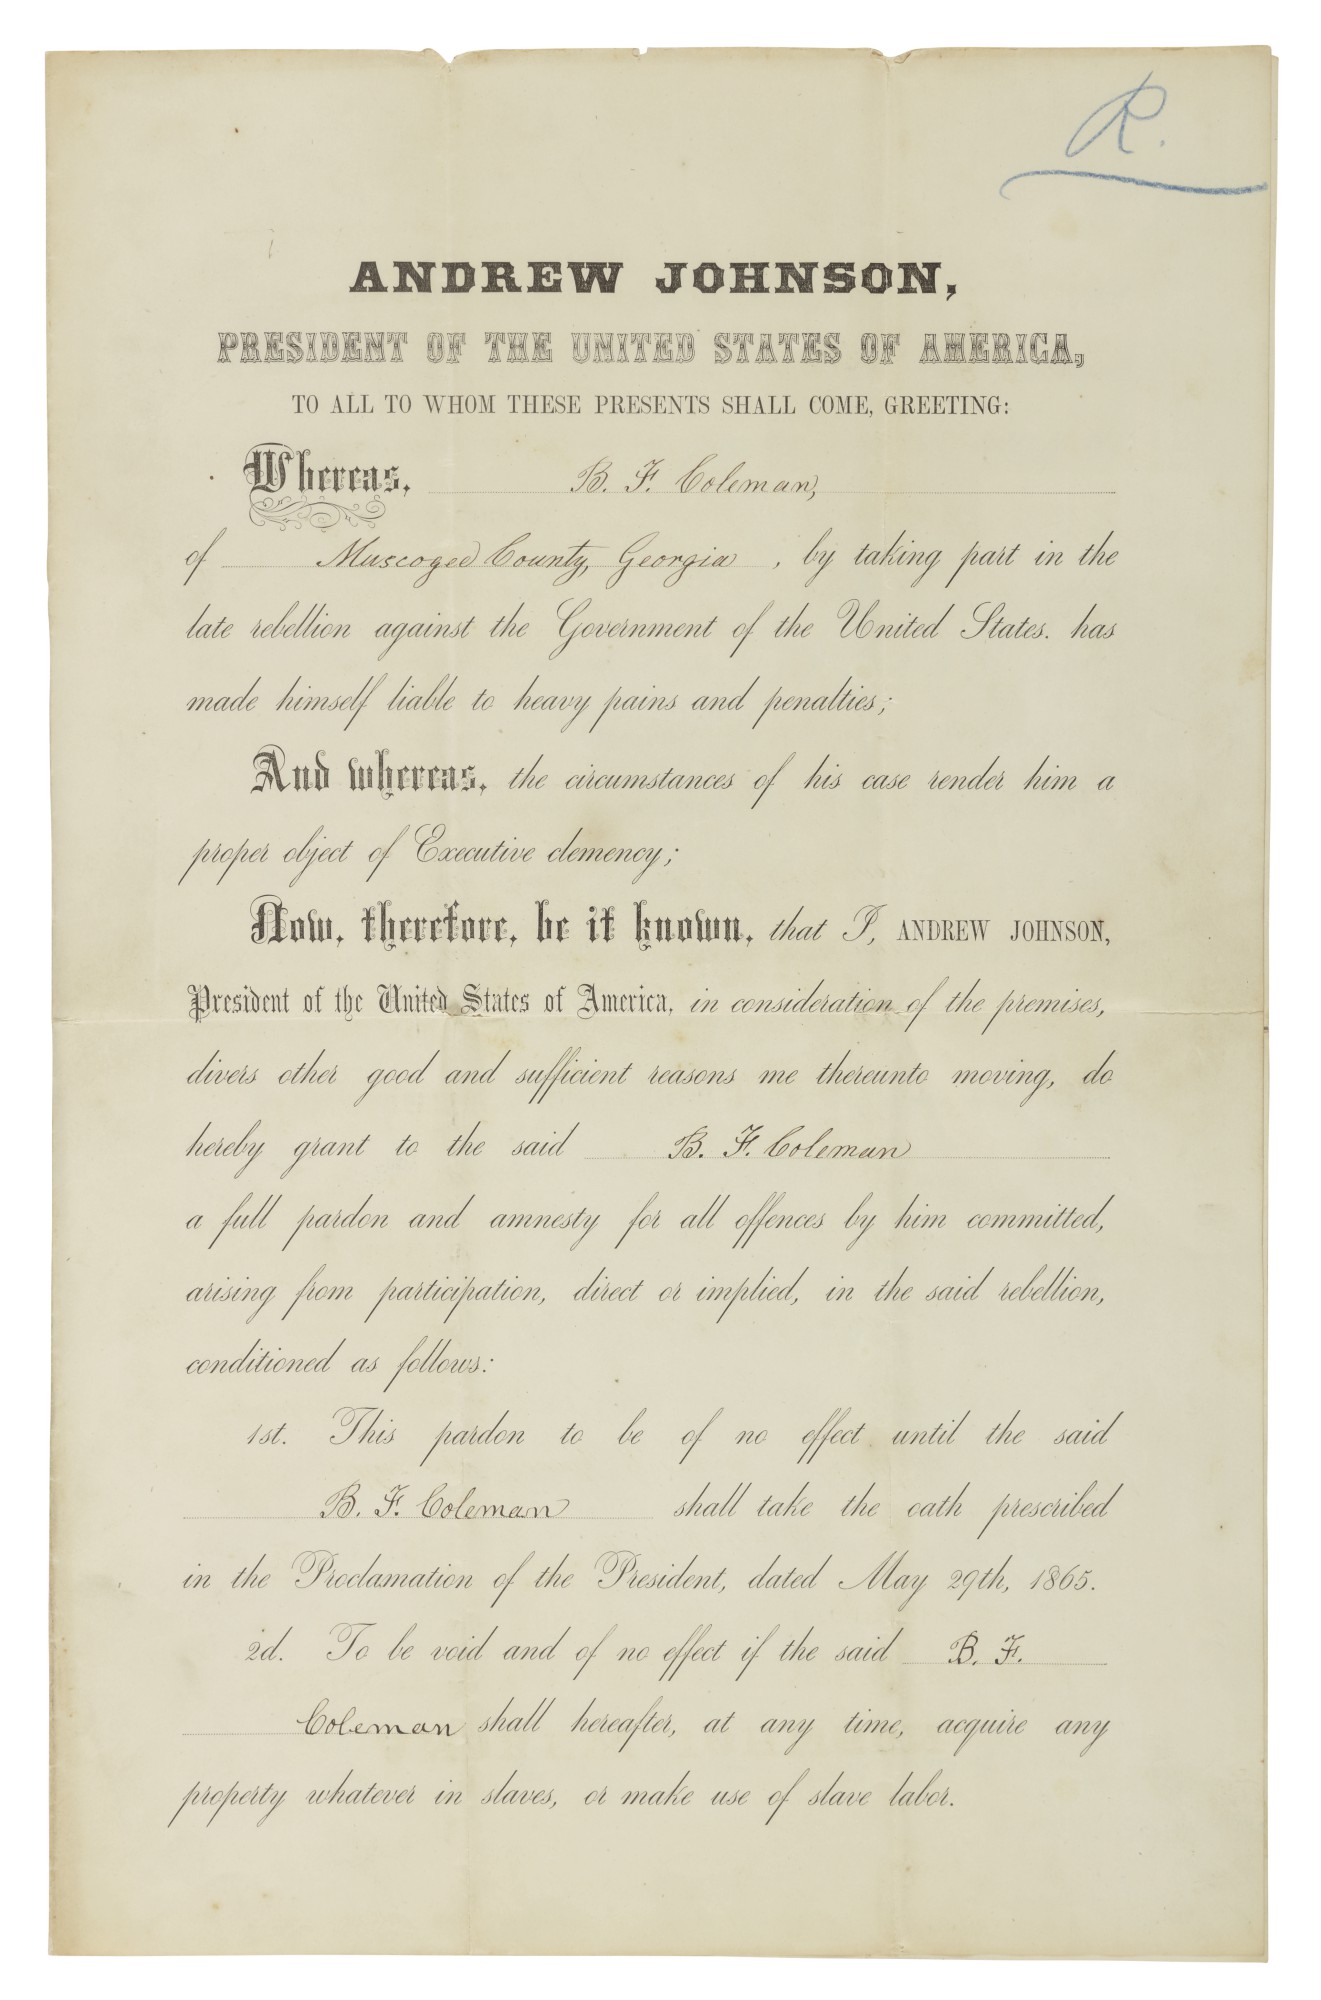 R.
ANDREW JOHNSON,
PRESIDENT OF THE UNITED STATES OF AMERICA,
TO ALL TO WHOM THESE PRESENTS SHALL COME, GREETING:
Whereas, B. F. Coleman,
of Muscogee County, Georgia , by taking part in the
late rebellion against the Government of the United States. has
made himself liable to heavy pains and penalties;
And whereas, the circumstances of his case render him a
proper object of Executive clemency;
Now, therefore, be it known, that I, ANDREW JOHNSON,
President of the United States of America, in consideration of the premises,
divers other good and sufficient reasons me thereunto moving, do
hereby grant to the said B. F. Coleman
a full pardon and amnesty for all offences by him committed,
arising from participation, direct or implied, in the said rebellion,
conditioned as follows:
1st. This pardon to be of no effect until the said
B. F. Coleman shall take the oath prescribed
in the Proclamation of the President, dated May 29th, 1865.
2d. To be void and of no effect if the said B. F.
Coleman shall hereafter, at any time, acquire any
property whatever in slaves, or make use of slave labor.